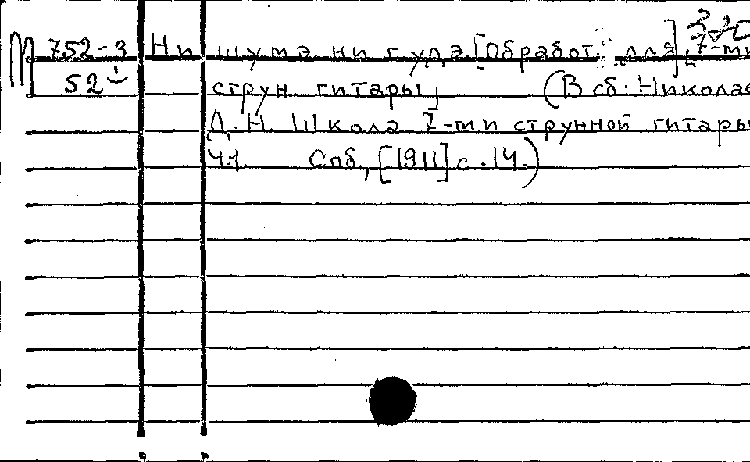 М 752-3 Ни шума ни гула [Обработ. для] 7-ми
52 струн. гитары (В сб: Николае
Д.Н. Школа 7-ми струнной гитары
ч.1 Спб, [1911] с. 14.)